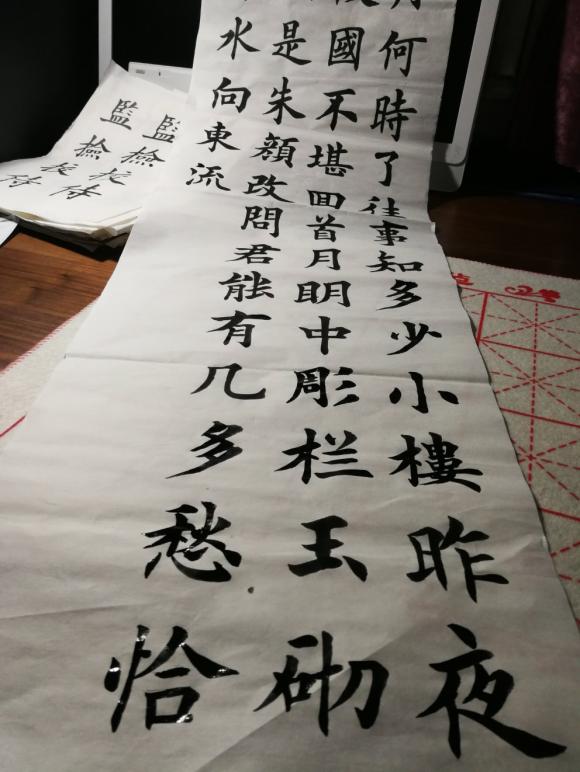 何時了往事知多少小樓昨夜
國不堪回首月明中彫栏玉砌
是朱顔改問君能有几多愁恰
水向東流
監
監